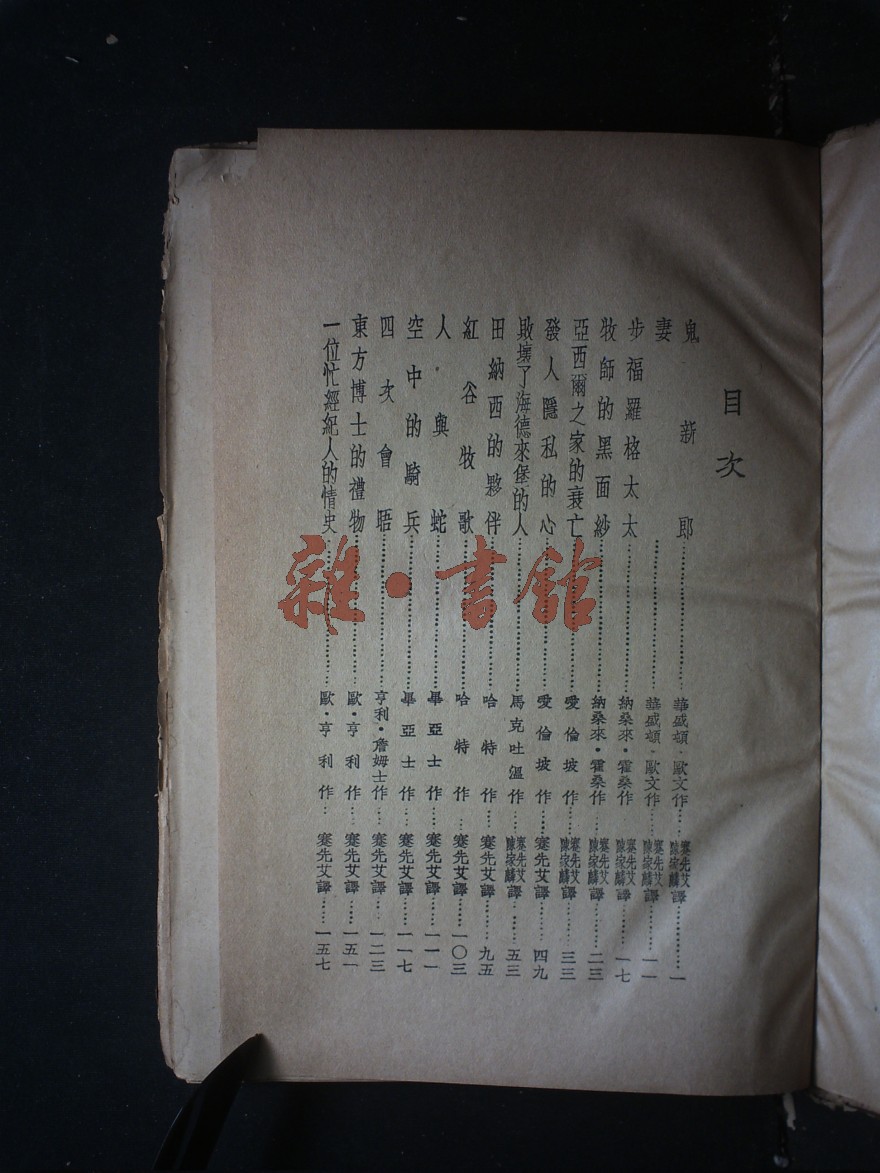 目次
鬼新郎……華盛頓·歐文作……蹇先艾 陳家麟譯……一
妻……華盛頓·歐文作……蹇先艾 陳家麟譯……一一
步福羅格太太……納桑來·霍桑作……蹇先艾 陳家麟譯……一七
牧師的黑面紗……納桑來·霍桑作……蹇先艾 陳家麟譯……二三
亞西爾之家的衰亡……愛倫坡作……蹇先艾 陳家麟譯……三三
發人隱私的心……愛倫坡作……蹇先艾譯……四九
敗壞了海德來堡的人……馬克吐溫作……蹇先艾 陳家麟譯……五三
田納西的夥伴……哈特作……蹇先艾譯……九五
紅谷牧歌……哈特作……蹇先艾譯……一〇三
人與蛇……畢亞士作……蹇先艾譯……一一一
空中的騎兵……畢亞士作……蹇先艾譯……一一七
四次會晤……亨利·詹姆士作……蹇先艾譯……一二三
東方博士的禮物……歐·亨利作……蹇先艾譯……一五一
一位忙經紀人的情史……歐·亨利作……蹇先艾譯……一五七
雜·書館